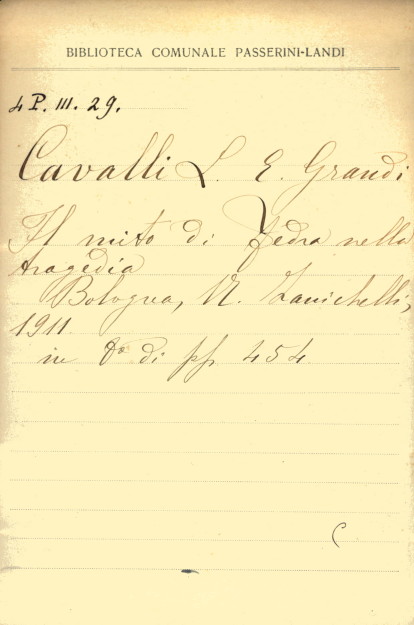 BIBLIOTECA COMUNALE PASSERINI-LANDI
4 P. III. 29.
Cavalli L. E. Grandi
Il mito di Fedra nella
tragedia
Bologna, N. Zanichelli,
1911
in 8º di pp 454